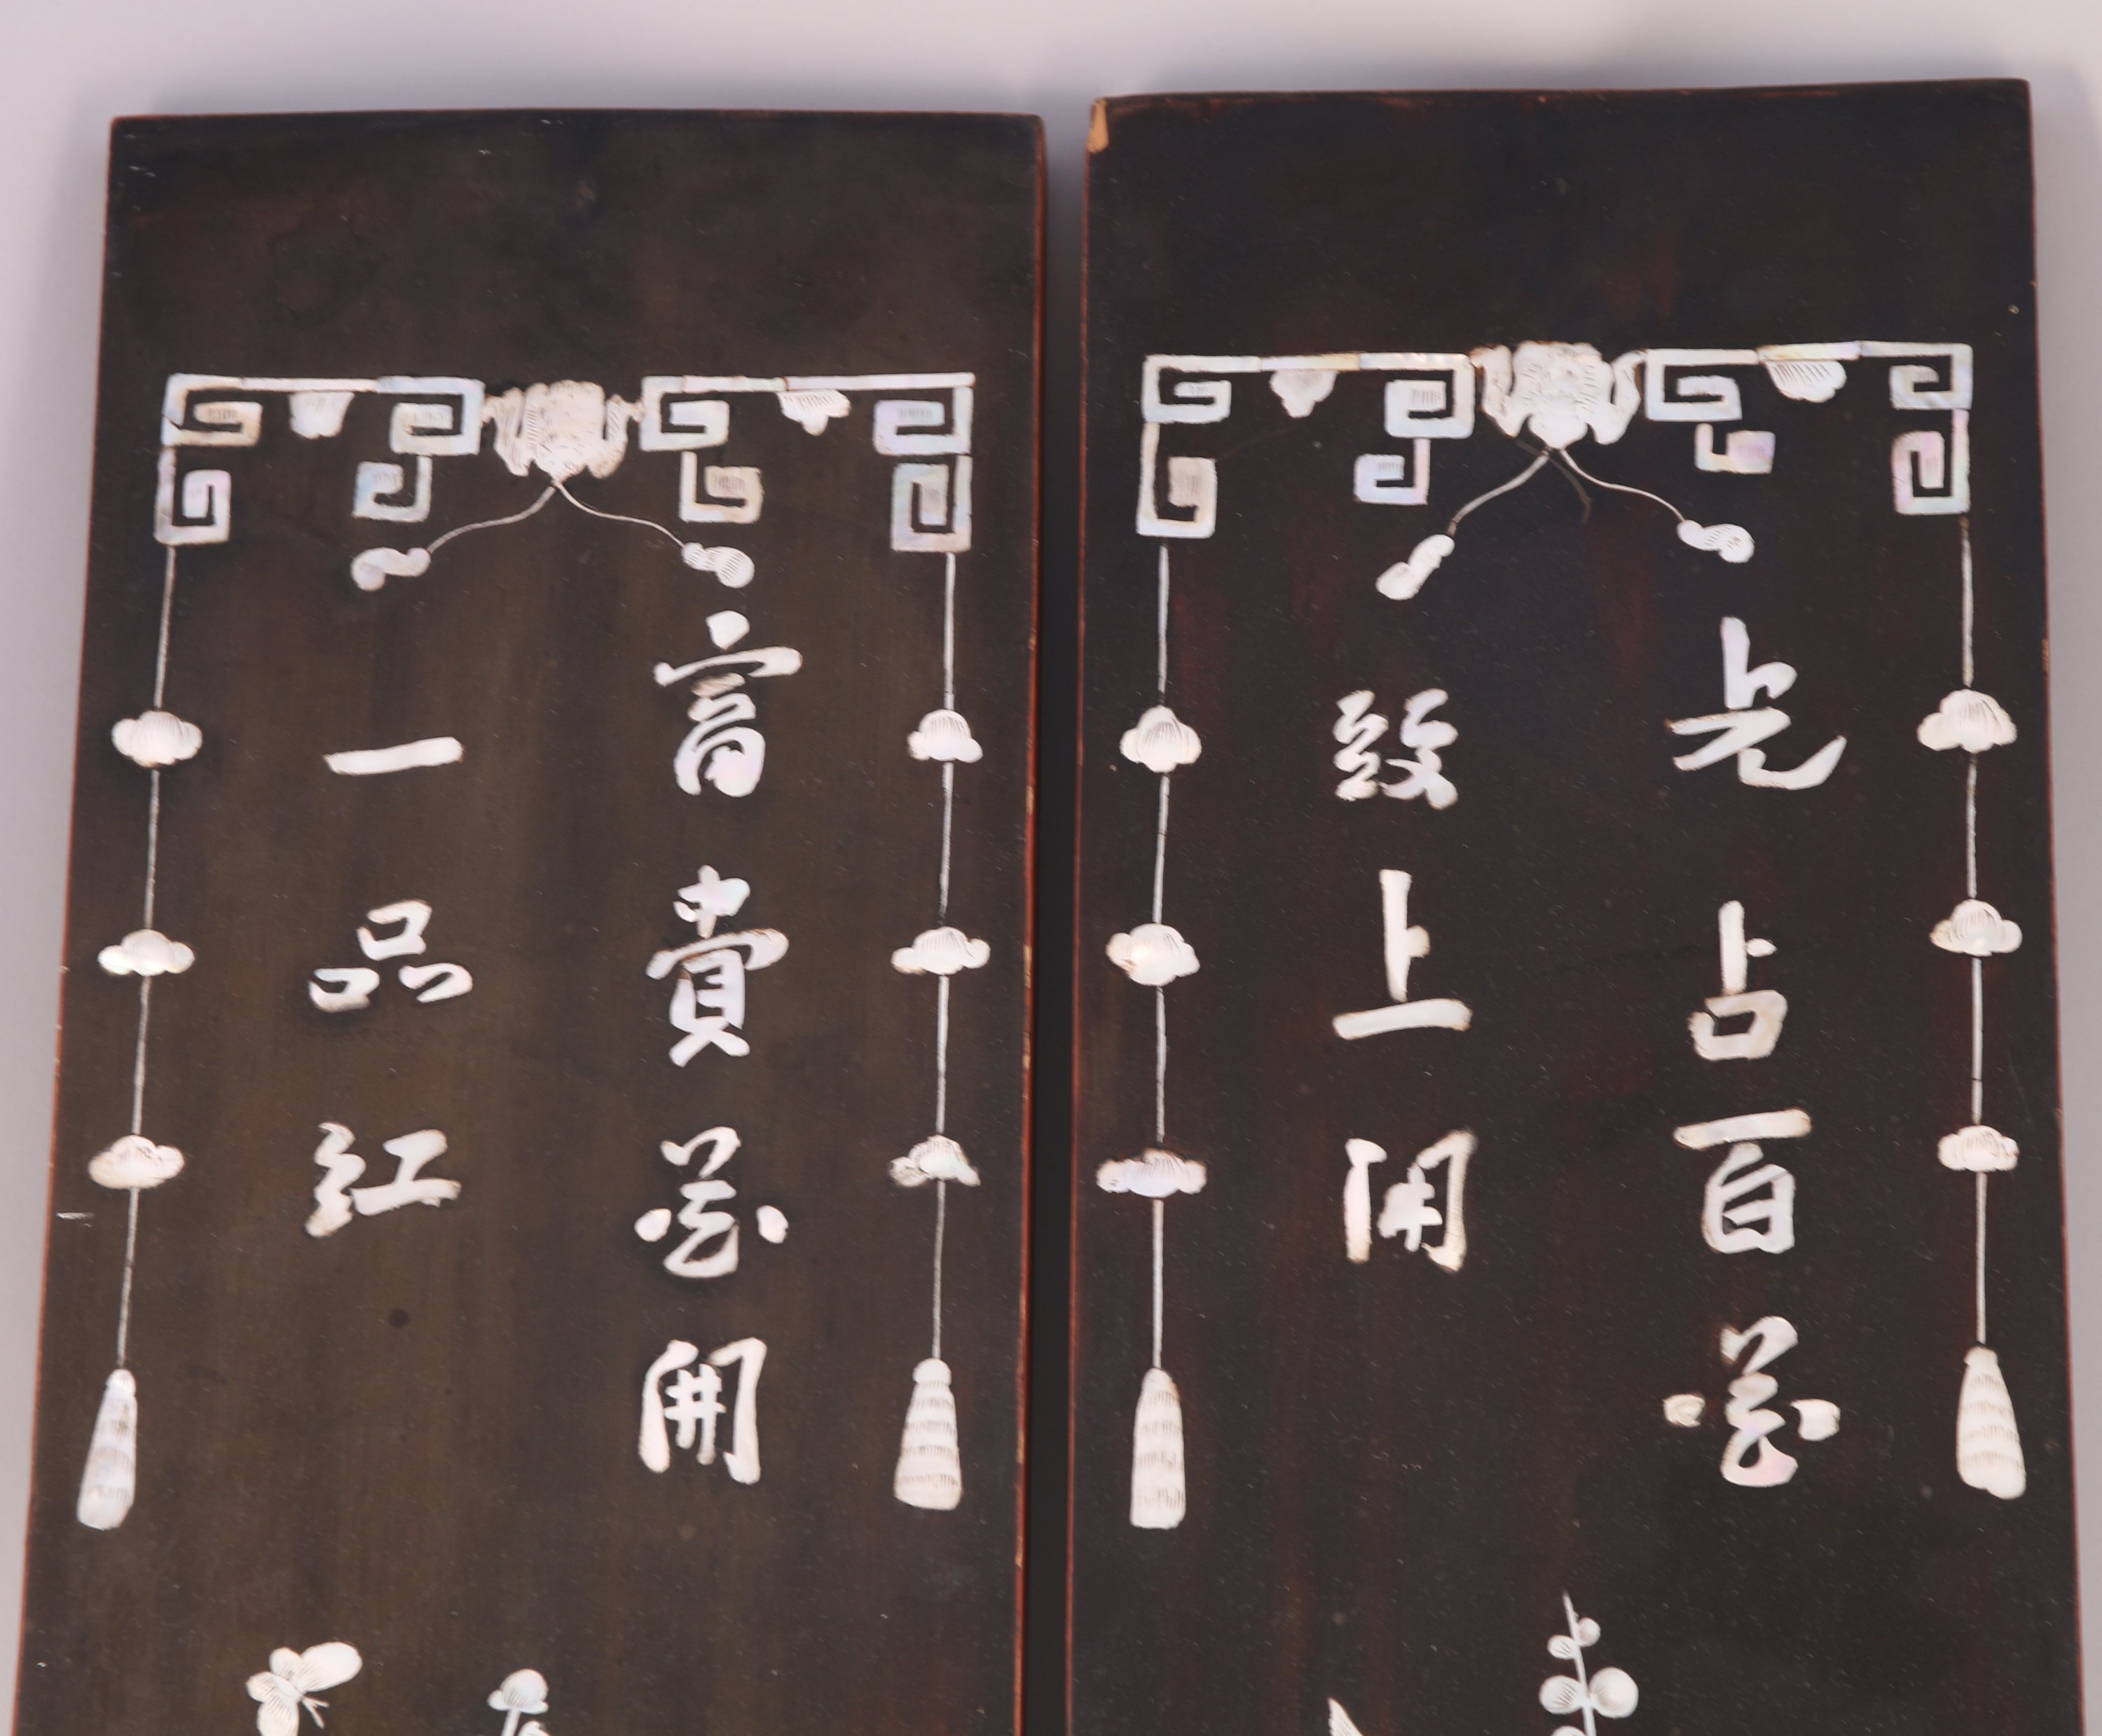 先占百花
頭上開
富貴花開
一品紅